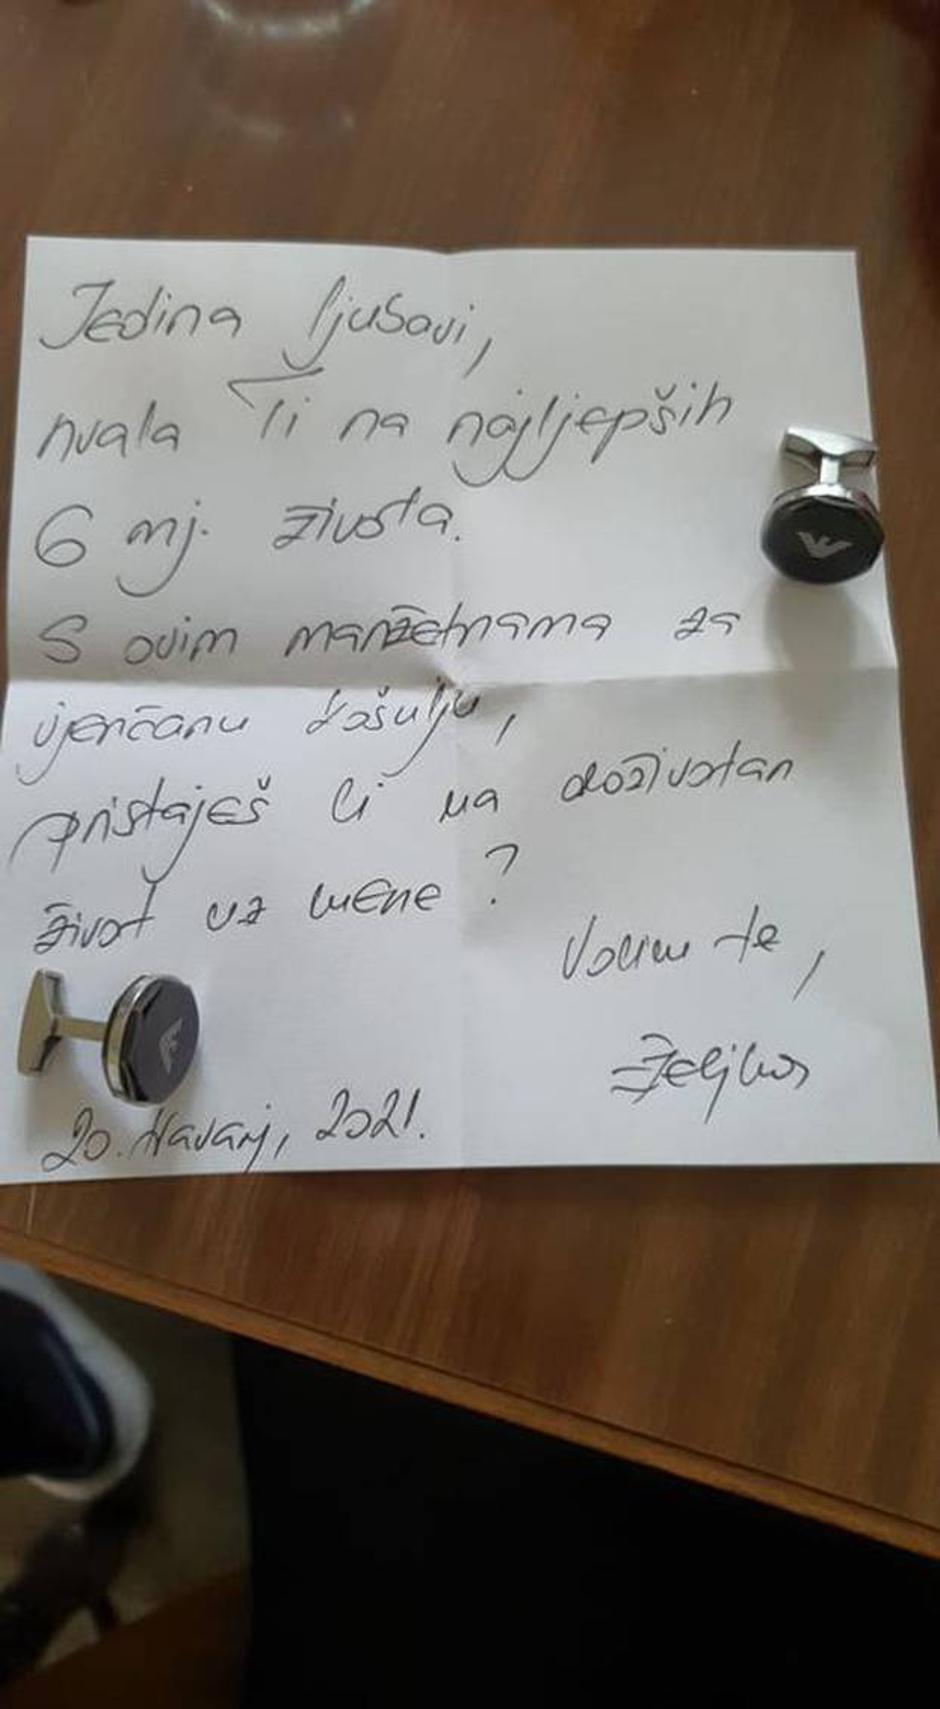 Jedina ljubavi,
hvala Ti na najljepših
6 mj. života.
S ovim manžetnama za
vjenčanu košulju,
pristaješ li na doživotan
život uz mene?
Volim te,
Željko
20. Travanj, 2021.